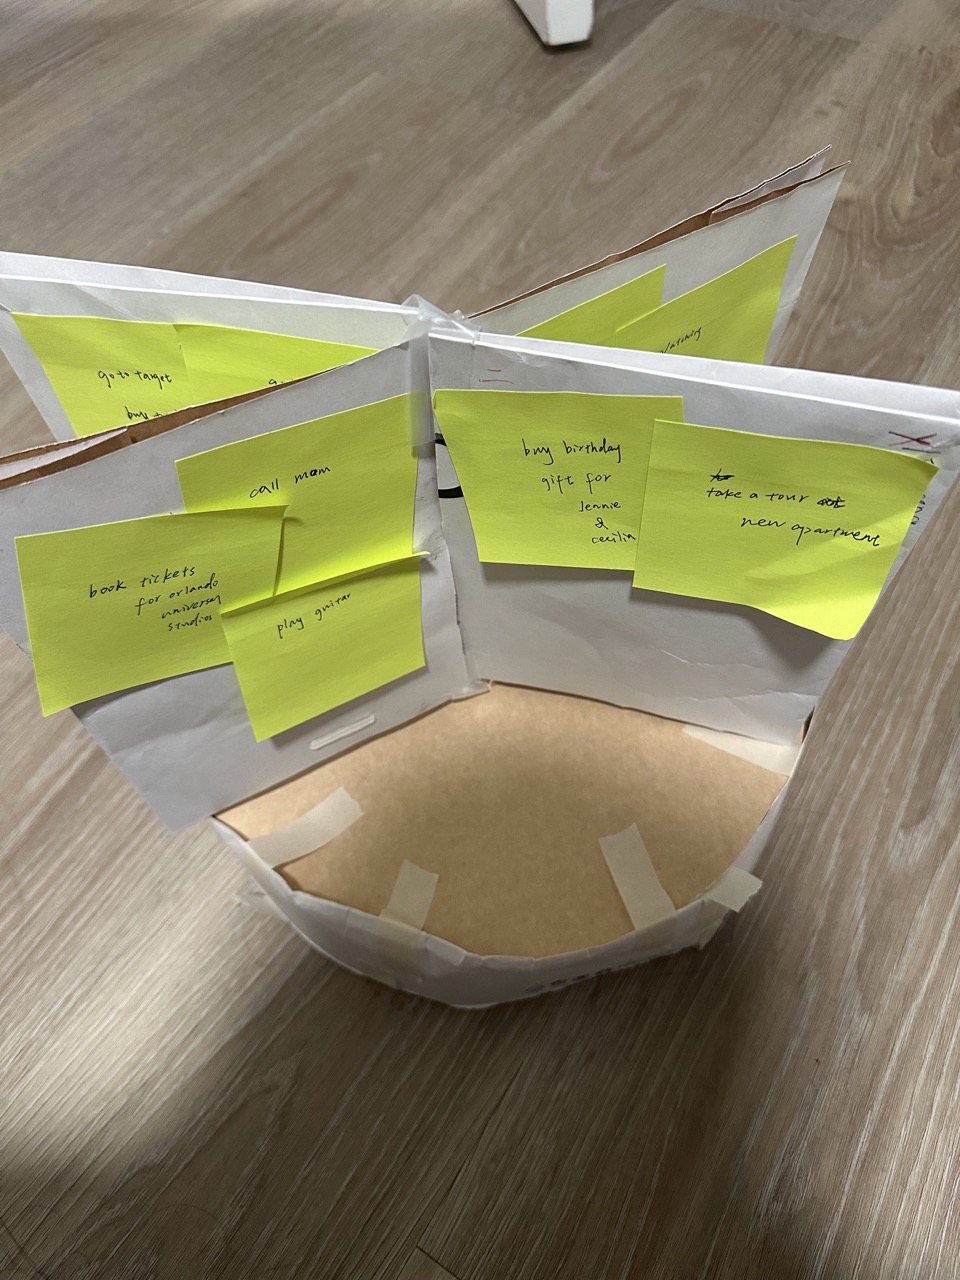 go to target
buy
call mom
book tickets
for orlando
universal
studios
play guitar
buy birthday
gift for
Jennie
&
cecilia
take a tour
new apartment
watching